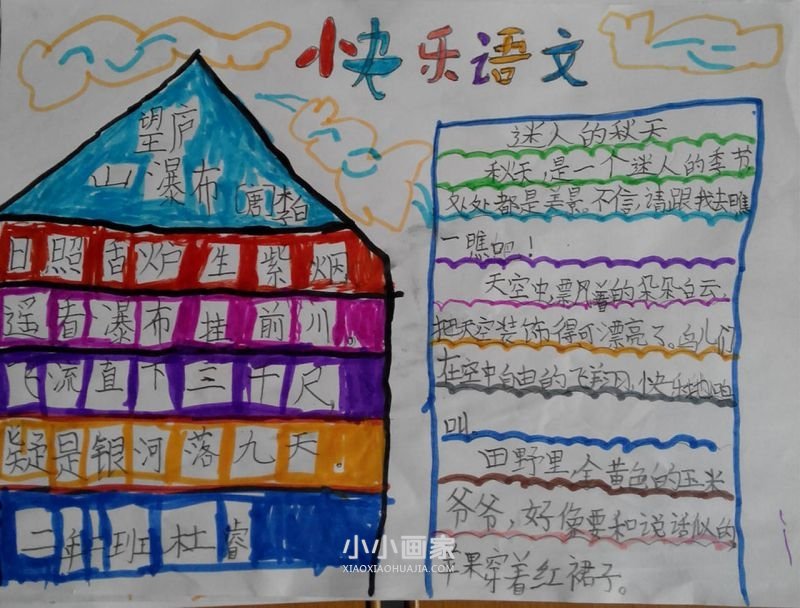 快乐语文
望庐
山瀑布
[唐]李白
日照香炉生紫烟
遥看瀑布挂前川。
飞流直下三千尺
疑是银河落九天。
二年二班杜睿
迷人的秋天
秋天,是一个迷人的季节
处处都是美景。不信,请跟我去瞧
一瞧吧!
天空中,飘着的朵朵白云,
把天空装饰得可漂亮了。鸟儿们
在空中自由的飞翔,快乐地鸣
叫.
田野里,金黄色的玉米
爷爷,好像要和说话似的
苹果穿着红裙子。
小小画家
XIAOXIAOHUAJIA.COM